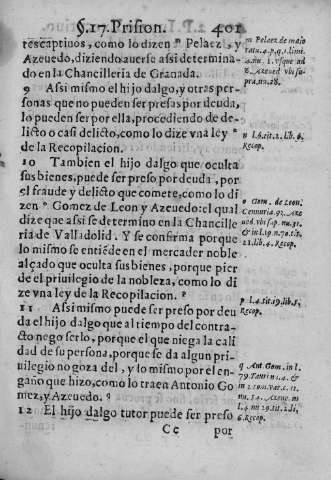 §.17. Prision. 401
rescaptiuos, como lo dizen ᵐ Pelaez, y
Azeuedo, diziendo auerse assi determina-
do en la Chancilleria de Granada.
9 Assi mismo el hijo dalgo, y otras per-
sonas que no pueden ser presas por deuda,
lo pueden ser por ella, procediendo de de-
licto o casi delicto, como lo dize vna ley ⁿ
de la Recopilacion.
10 Tambien el hijo dalgo que oculta
sus bienes, puede ser preso por deuda, por
el fraude y delicto que comete, como lo di-
zen ᵒ Gomez de Leon y Azeuedo: el qual
dize que assi se determino en la Chancille
ria de Valladolid. Y se confirma porque
lo mismo se entiẽde en el mercader noble
alçado que oculta sus bienes, porque pier
de el priuilegio de la nobleza, como lo di
ze vna ley de la Recopilacion. ᵖ
11 Assi mismo puede ser preso por deu
da el hijo dalgo que al tiempo del contra-
cto nego serlo, porque el que niega la cali
dad de su persona, porque se da algun pri-
uilegio no goza del, y lo mismo por el en-
gaño que hizo, como lo traen Antonio Go
mez, y Azeuedo. ᑫ
12 El hijo dalgo tutor puede ser preso
Cc por
m Pelaez de maio
ratu. 4. p. q. 1. limi
n. 1. vsque ad
Azeued vbi su-
pra, nu. 28.
n l. 6. tit. 2. lib. 6.
Recop.
o Gom. de Leon.
Centuria. 93. Aze
ued. vbi sup. nu. 31.
& in l. 19. n. 70. t.
21. lib. 4. Recop.
p l. 4. tit. 19. lib. 5.
Recop.
q Ant Gom. in l.
79. Tauri n. 4. &
in 2. tom. var. c. 11.
nu. 54. Azeue. in
l. 4. tit. 2. li.
6. Recop.